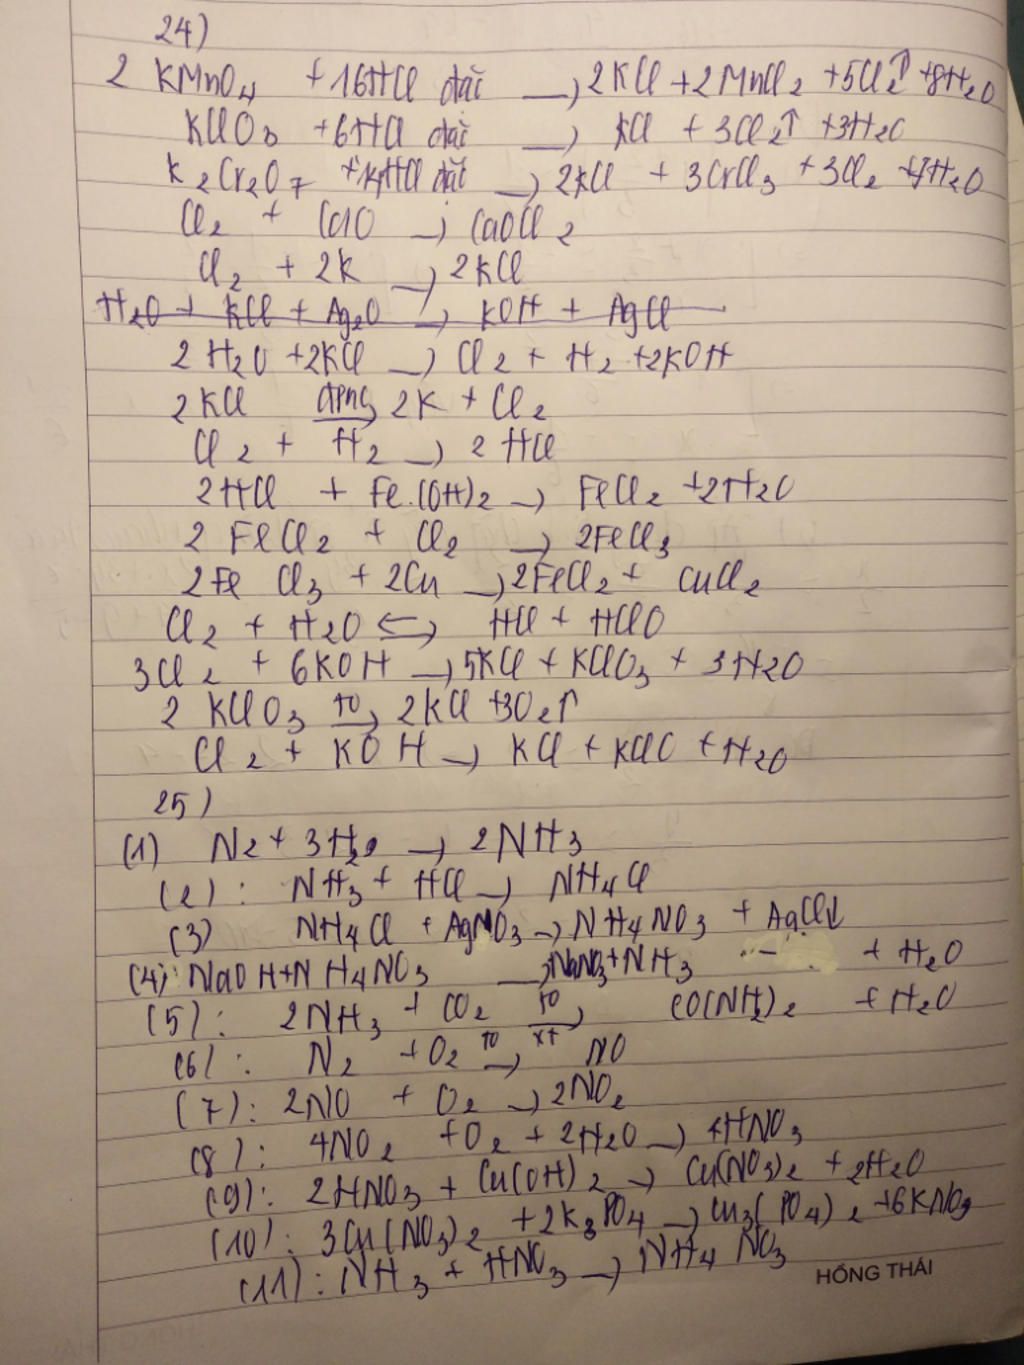 24)
2 KMnO4 + 16HCl đặc → 2KCl + 2MnCl2 + 5Cl2↑ + 8H2O
KClO3 + 6HCl đặc → KCl + 3Cl2↑ + 3H2O
K2Cr2O7 + 14HCl đặc → 2KCl + 3CrCl3 + 3Cl2 + 7H2O
Cl2 + CaO → CaOCl2
Cl2 + 2K → 2KCl
H2O + KCl + Ag2O → KOH + AgCl
2 H2O + 2KCl → Cl2 + H2 + 2KOH
2KCl đpnc→ 2K + Cl2
Cl2 + H2 → 2 HCl
2HCl + Fe(OH)2 → FeCl2 + 2H2O
2 FeCl2 + Cl2 → 2FeCl3
2FeCl3 + 2Cu → 2FeCl2 + CuCl2
Cl2 + H2O ⇆ HCl + HClO
3Cl2 + 6KOH → 5KCl + KClO3 + 3H2O
2 KClO3 t0→ 2KCl + 3O2↑
Cl2 + KOH → KCl + KClO + H2O
25)
(1) N2 + 3H2 → 2NH3
(2): NH3 + HCl → NH4Cl
(3) NH4Cl + AgNO3 → NH4NO3 + AgCl↓
(4): NaOH + NH4NO3 → NaNO3 + NH3 + H2O
(5): 2NH3 + CO2 t0 xt→ CO(NH2)2 + H2O
(6): N2 + O2 t0→ NO
(7): 2NO + O2 → 2NO2
(8): 4NO2 + O2 + 2H2O → 4HNO3
(9): 2HNO3 + Cu(OH)2 → Cu(NO3)2 + 2H2O
(10): 3Cu(NO3)2 + 2K3PO4 → Cu3(PO4)2 + 6KNO3
(11): NH3 + HNO3 → NH4NO3
HỒNG THÁI